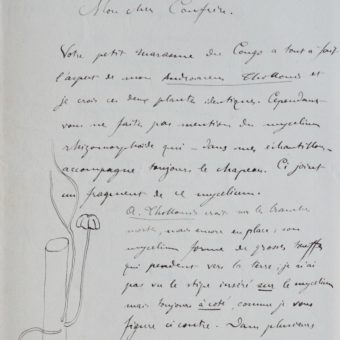 Mon cher Confrère.
Votre petit marasme du Congo a tout à fait
l'aspect de mon Androsaceus Thollonis et
je crois ces deux plantes identiques. Cependant
vous ne faites pas mention du mycelium
rhizomorphoïde qui – dans mes échantillons –
accompagne toujours le chapeau. Ci joint
un fragment de ce mycelium.
A. Thollonis croit sur les branches
mortes, mais encore en place; son
mycelium forme de grosses touffes
qui pendent vers la terre, je n'ai
pas vu le stipe inséré sur le mycelium
mais toujours à coté, comme je vous
figure ci contre. Dans plusieurs